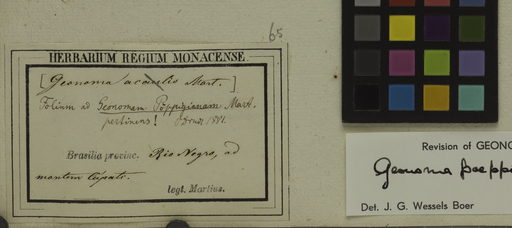 65
HERBARIUM REGIUM MONACENSE.
[Geonoma acaulis Mart.]
Folium ad Geonomam Pöppigianam Mart.
pertinens! Drude 1881.
Brasilia provinc. Rio Negro, ad
montem Cupati.
legt. Martius.
Revision of GEONO
Geonoma poepp
Det. J. G. Wessels Boer